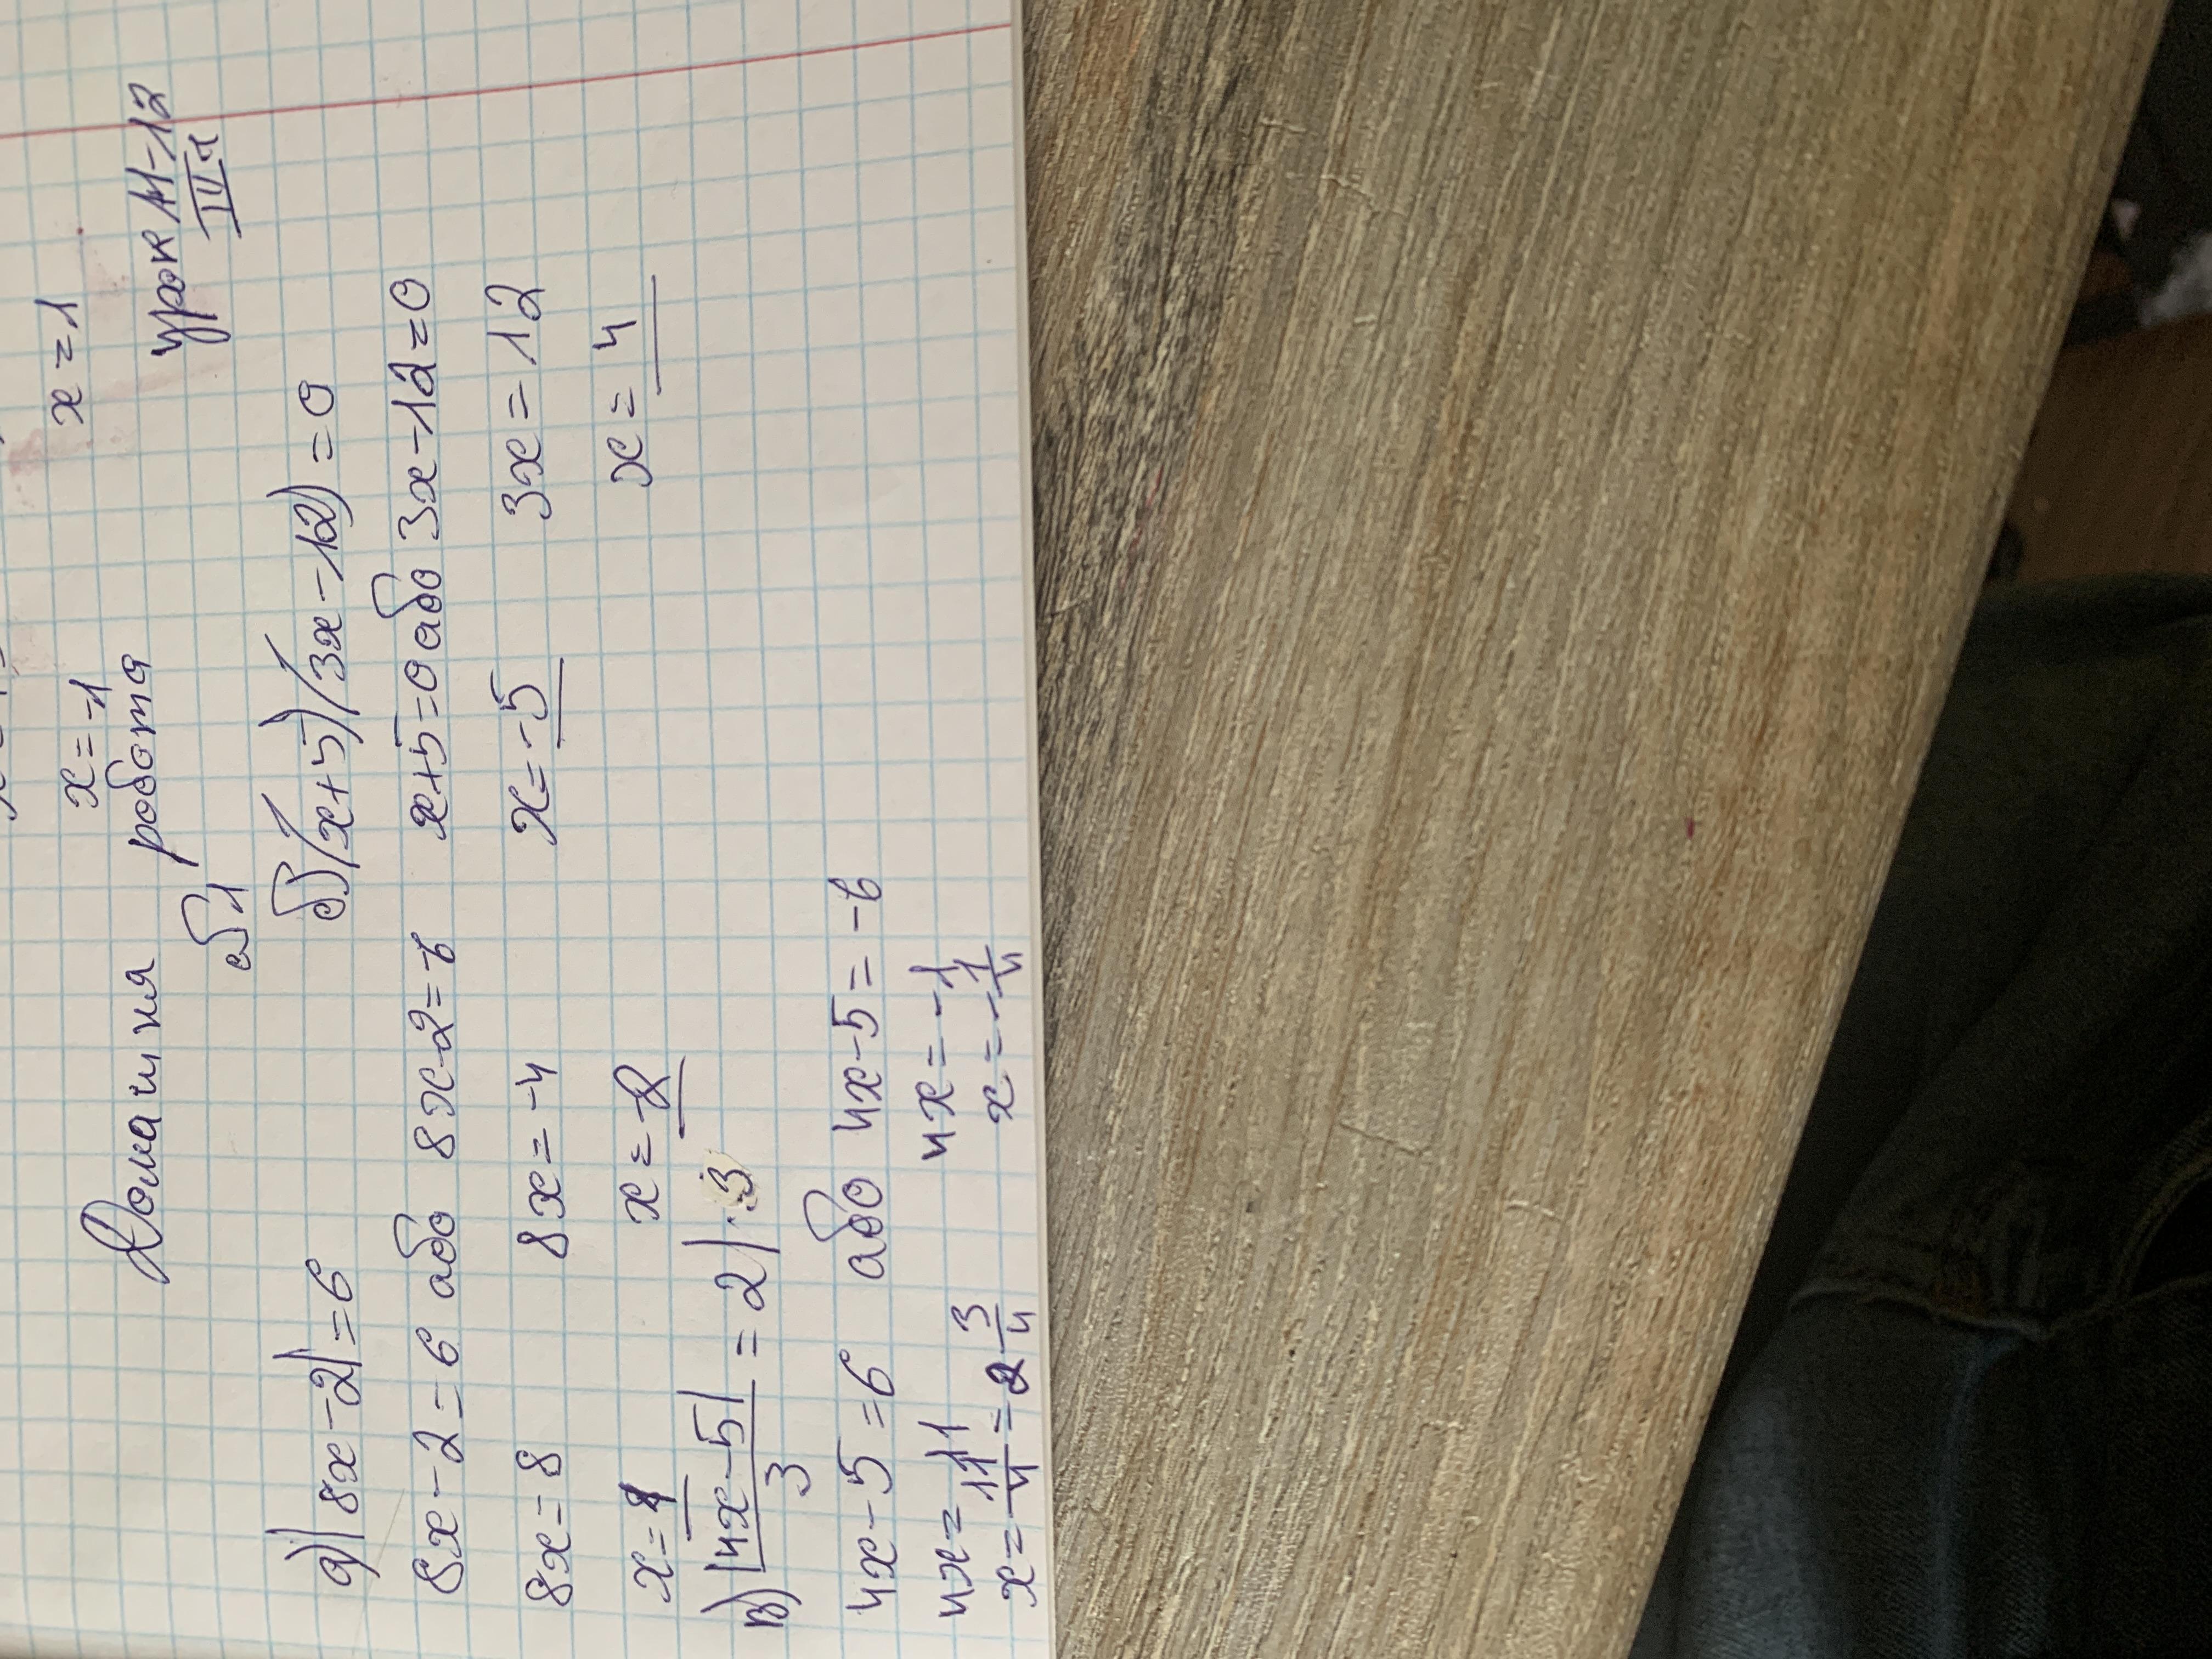 x = -1 x = 1
Домашня робота урок 11-12
б1 IV ч
а) |8x - 2| = 6 б) (x + 5)(3x - 12) = 0
8x - 2 = 6 або 8x - 2 = -6 x + 5 = 0 або 3x - 12 = 0
8x = 8 8x = -4 x = -5 3x = 12
x = 1 x = -2 x = 4
в) |4x - 5| / 3 = 2 | · 3
4x - 5 = 6 або 4x - 5 = -6
4x = 11 4x = -1
x = 11/4 = 2 3/4 x = - 1/4